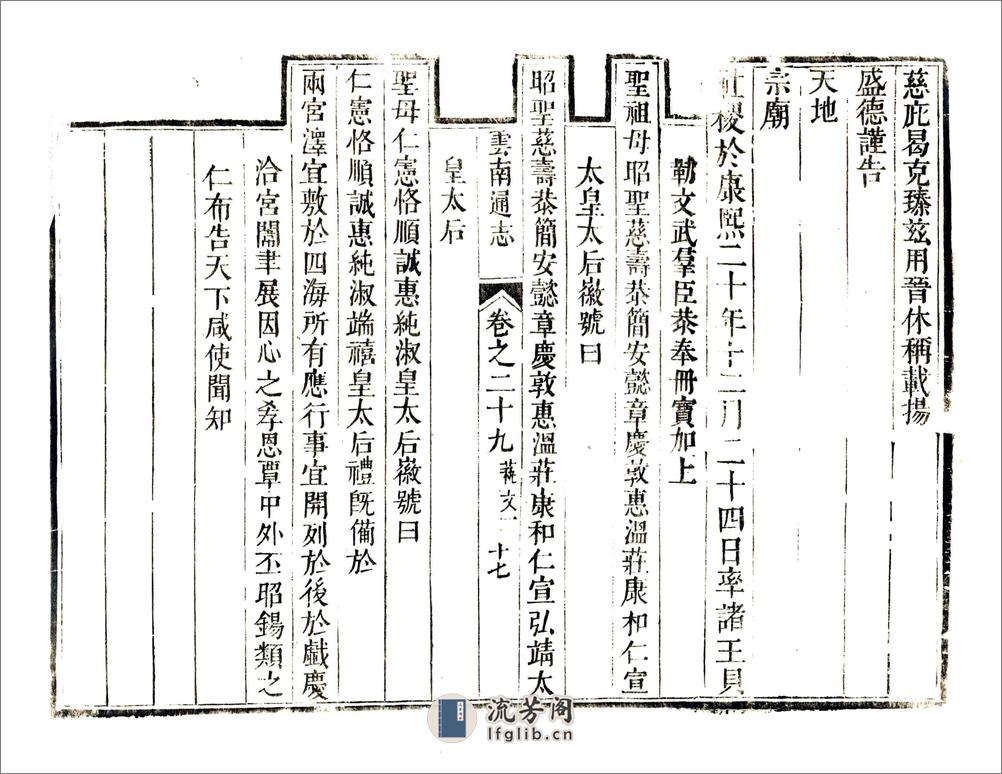 慈庇曷克臻兹用晉休稱載揚
盛德謹告
天地
宗廟
社稷於康熙二十年十二月二十四日率諸王貝
勒文武羣臣恭奉冊寶加上
聖祖母昭聖慈壽恭簡安懿章慶敦惠溫莊康和仁宣
太皇太后徽號曰
昭聖慈壽恭簡安懿章慶敦惠溫莊康和仁宣弘靖太
雲南通志
卷之二十九
藝文一
十七
皇太后
聖母仁憲恪順誠惠純淑皇太后徽號曰
仁憲恪順誠惠純淑端禧皇太后禮既備於
兩宮澤宜敷於四海所有應行事宜開列於後於戲慶
洽宮闈聿展因心之孝恩覃中外丕昭錫類之
仁布告天下咸使聞知
流芳阁
lfglib.cn